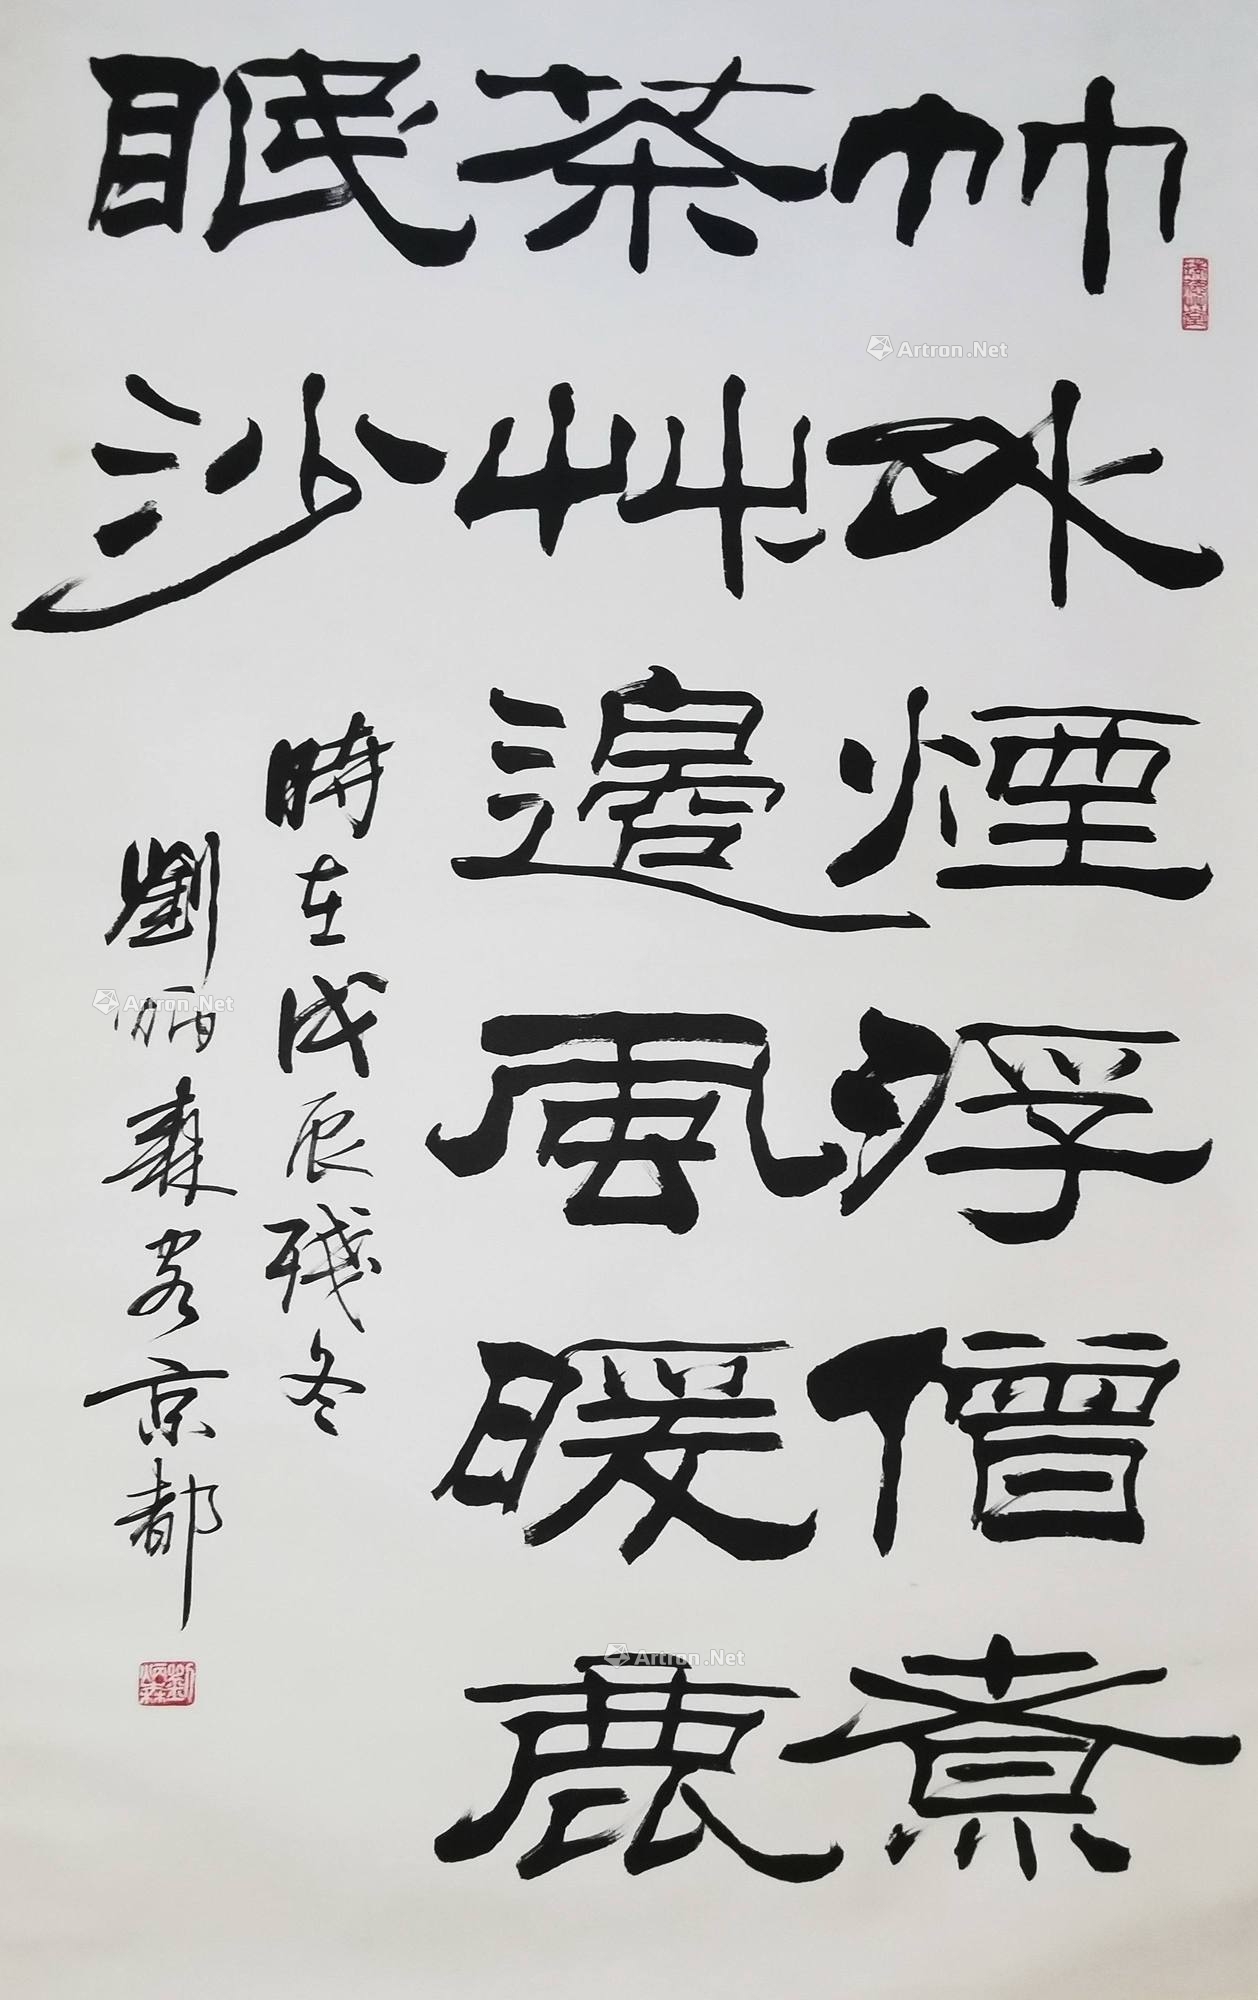 竹外煙浮僧煮
茶艸邊風暖鹿
眠沙
時在戊辰殘冬
劉炳森客京都
劉炳森
Artron.Net
Artron.Net
Artron.Net